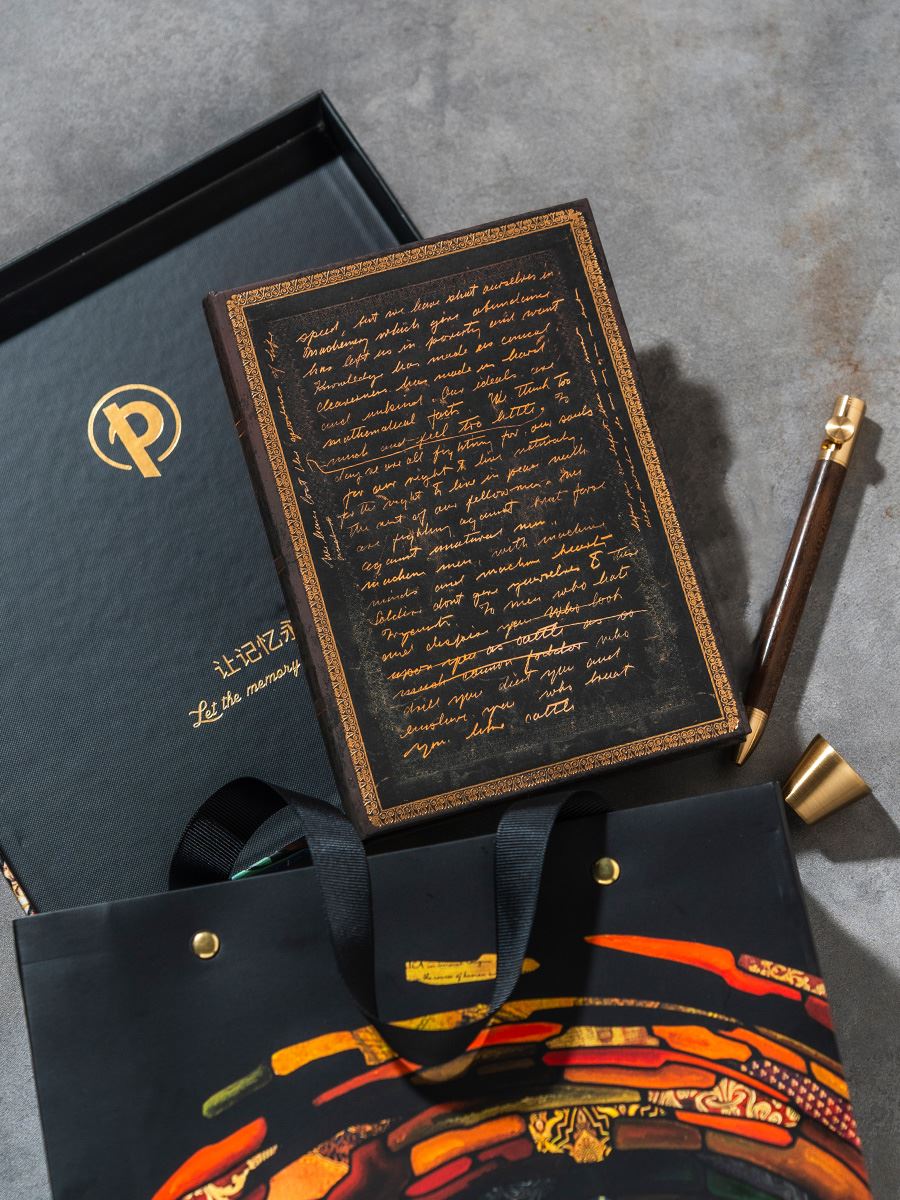 P
让记忆
Let the memory
speed, but we have shut ourselves in
machinery which gives abundance
has left us in poverty and want
Knowledge has made us
cleverness has made us hard
and unkind. Our ideals are
mathematical facts. We think too
much and feel too little. To
day we are all fighting for our souls
for our right to live naturally
for the right to live in peace with
the rest of our fellow-men. We
are fighting against brut force
against unnatural men,
machine men, with machine
minds and machine hearts—
Soldiers dont give yourselves
To men who hate
and despise you who look
upon you as cattle as
cannon fodder who
drill you diet you and
enslave you who treat
you like cattle
the course of human